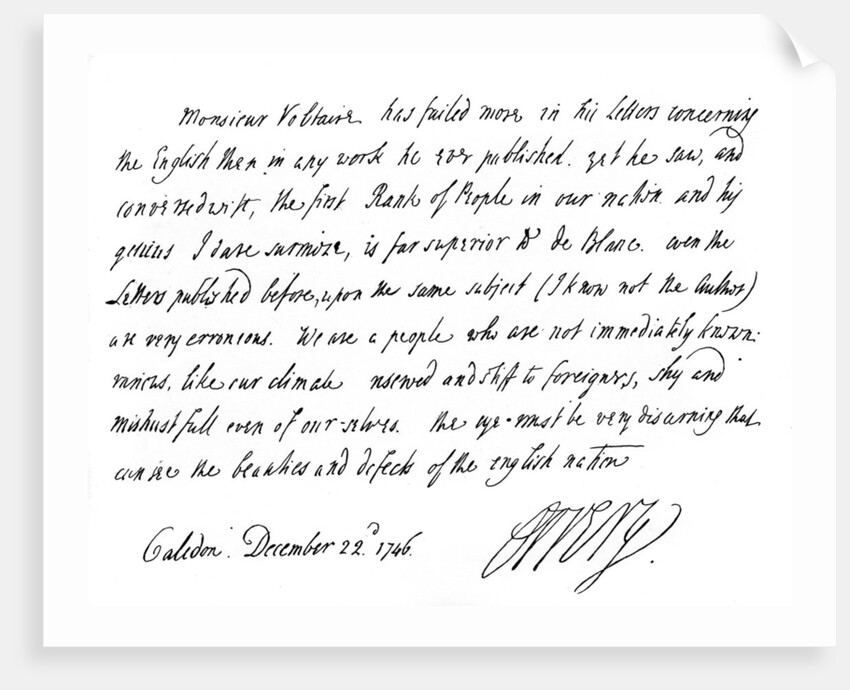 Monsieur Voltaire has failed more in his Letters concerning
the English then in any work he ever published. yet he saw, and
conversed with, the first Rank of People in our nation. and his
genius I dare surmize, is far superior to de Blanc. even the
Letters published before, upon the same subject (I know not the Author)
are very erronious. We are a people who are not immediately known:
various, like our climate reserved and stiff to foreigners, shy and
mistrustfull even of our selves. the eye must be very discerning that
can see the beauties and defects of the english nation
Caledon. December 22.d 1746.
Orrery.